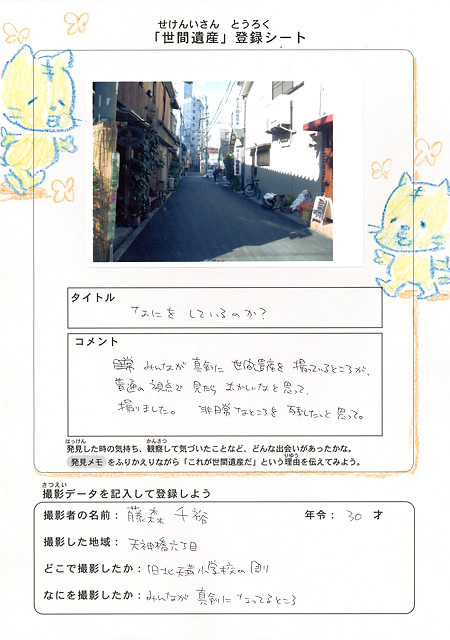 せけんいさん とうろく
「世間遺産」登録シート
タイトル
なにを しているのか?
コメント
日常 みんなが 真剣に 世間遺産を 撮っているところが、
普通の 視点で 見たら おかしいなと 思って、
撮りました。 非日常なところを 残したいと 思って。
はっけん かんさつ
発見した時の気持ち、観察して気づいたことなど、どんな出会いがあったかな。
りゆう
発見メモ をふりかえりながら「これが世間遺産だ」という理由を伝えてみよう。
さつえい
撮影データを記入して登録しよう
撮影者の名前: 藤森 千裕 年令: 30 才
撮影した地域: 天神橋六丁目
どこで撮影したか: 旧北天満小学校の 側
なにを撮影したか: みんなが 真剣に なってるところ